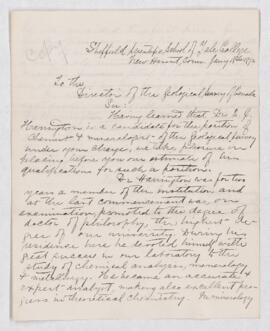 copy
Sheffield Scientific School of Yale College
New Haven, Conn Jany 18th 187
To the
Director of the Geological Survey of Canada
Sir:
Having learned that Dr B. J.
Harrington is a candidate for the position of
Chemist & mineralogist of the Geological Survey
under your charge, we take pleasure in
placing before you our estimate of his
qualifications for such a position.
Dr. Harrington was for two
years a member of this institution and
at the last commencement was, on
examination, promoted to the degree of
doctor of philosophy, the highest de-
gree of our university. During his
residence here he devoted himself with
great success in our laboratory to the
study of chemical analysis, mineralogy
& metallurgy. He became an accurate &
expert analyst, making also excellent pro-
gress in theoretical chemistry. In mineralogy